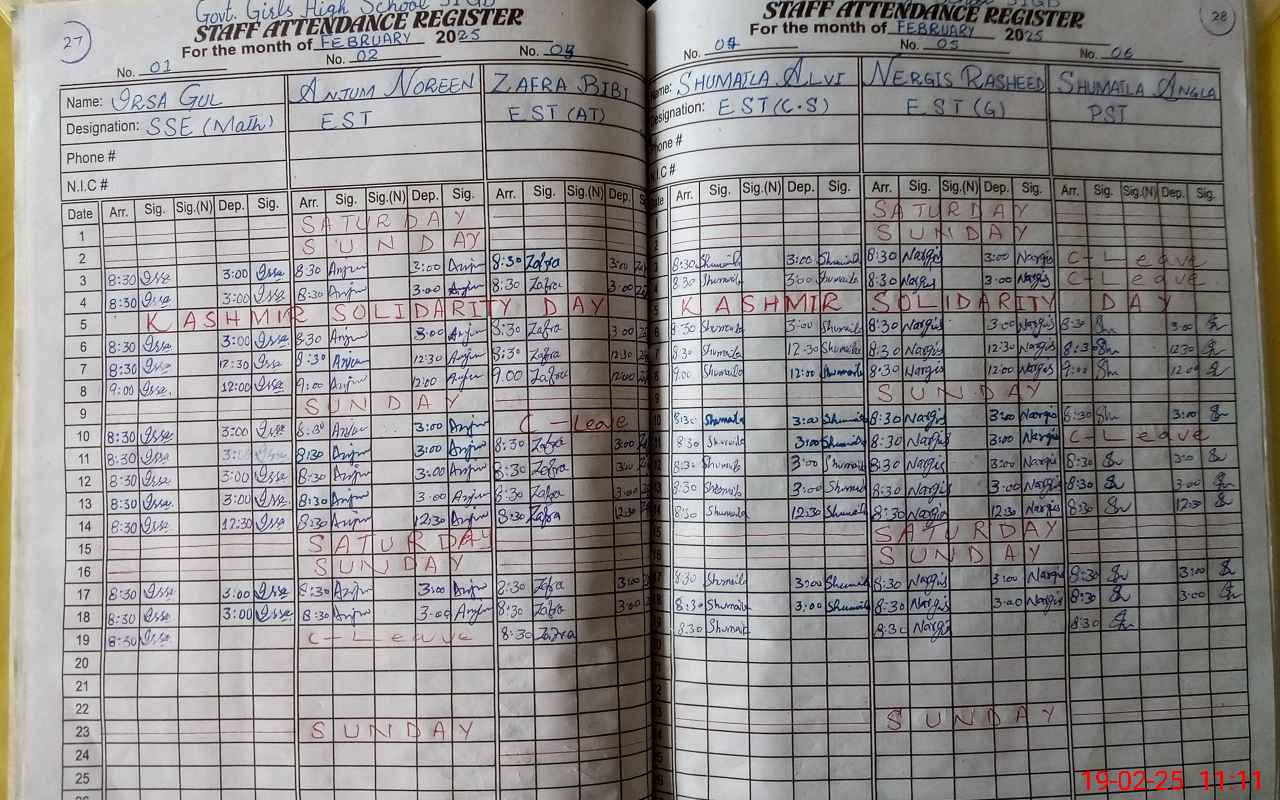 Govt. Girls High School
STAFF ATTENDANCE REGISTER
27
For the month of FEBRUARY 2025
No. 01 No. 02 No. 03
Name: IRSA GUL ANJUM NOREEN ZAFRA BIBI
Designation: SSE (Math) EST EST (AT)
Phone #
N.I.C #
Date Arr. Sig. Sig.(N) Dep. Sig. Arr. Sig. Sig.(N) Dep. Sig. Arr. Sig. Sig.(N) Dep.
1 SATURDAY
2 SUNDAY
3 8:30 Irsa 3:00 Irsa 8:30 Anjum 3:00 Anjum 8:30 Zafra 3:00
4 8:30 Irsa 3:00 Irsa 8:30 Anjum 3:00 Anjum 8:30 Zafra 3:00
5 KASHMIR SOLIDARITY DAY
6 8:30 Irsa 3:00 Irsa 8:30 Anjum 3:00 Anjum 8:30 Zafra 3:00
7 8:30 Irsa 12:30 Irsa 8:30 Anjum 12:30 Anjum 8:30 Zafra 12:30
8 9:00 Irsa 12:00 Irsa 9:00 Anjum 12:00 Anjum 9:00 Zafra 12:00
9 SUNDAY
10 8:30 Irsa 3:00 Irsa 8:30 Anjum 3:00 Anjum C-Leave
11 8:30 Irsa 3:00 Irsa 8:30 Anjum 3:00 Anjum 8:30 Zafra 3:00
12 8:30 Irsa 3:00 Irsa 8:30 Anjum 3:00 Anjum 8:30 Zafra 3:00
13 8:30 Irsa 3:00 Irsa 8:30 Anjum 3:00 Anjum 8:30 Zafra 3:00
14 8:30 Irsa 12:30 Irsa 8:30 Anjum 12:30 Anjum 8:30 Zafra 12:30
15 SATURDAY
16 SUNDAY
17 8:30 Irsa 3:00 Irsa 8:30 Anjum 3:00 Anjum 8:30 Zafra 3:00
18 8:30 Irsa 3:00 Irsa 8:30 Anjum 3:00 Anjum 8:30 Zafra 3:00
19 8:30 Irsa C-Leave 8:30 Zafra
20
21
22
23 SUNDAY
24
25
STAFF ATTENDANCE REGISTER
28
For the month of FEBRUARY 2025
No. 04 No. 05 No. 06
Name: SHUMAILA ALVI NERGIS RASHEED SHUMAILA ANGLA
Designation: EST (C.S) EST (G) PST
Phone #
N.I.C #
Arr. Sig. Sig.(N) Dep. Sig. Arr. Sig. Sig.(N) Dep. Sig. Arr. Sig. Sig.(N) Dep. Sig.
SATURDAY
SUNDAY
8:30 Shumaila 3:00 Shumaila 8:30 Nargis 3:00 Nargis C-Leave
8:30 Shumaila 3:00 Shumaila 8:30 Nargis 3:00 Nargis C-Leave
KASHMIR SOLIDARITY DAY
8:30 Shumaila 3:00 Shumaila 8:30 Nargis 3:00 Nargis 8:30 3:00
8:30 Shumaila 12:30 Shumaila 8:30 Nargis 12:30 Nargis 8:30 12:30
9:00 Shumaila 12:00 Shumaila 8:30 Nargis 12:00 Nargis 9:00 12:00
SUNDAY
8:30 Shumaila 3:00 Shumaila 8:30 Nargis 3:00 Nargis 8:30 3:00
8:30 Shumaila 3:00 Shumaila 8:30 Nargis 3:00 Nargis C-Leave
8:30 Shumaila 3:00 Shumaila 8:30 Nargis 3:00 Nargis 8:30 3:00
8:30 Shumaila 3:00 Shumaila 8:30 Nargis 3:00 Nargis 8:30 3:00
8:30 Shumaila 12:30 Shumaila 8:30 Nargis 12:30 Nargis 8:30 12:30
SATURDAY
SUNDAY
8:30 Shumaila 3:00 Shumaila 8:30 Nargis 3:00 Nargis 8:30 3:00
8:30 Shumaila 3:00 Shumaila 8:30 Nargis 3:00 Nargis 8:30 3:00
8:30 Shumaila 8:30 Nargis 8:30
SUNDAY
19-02-25 11:11